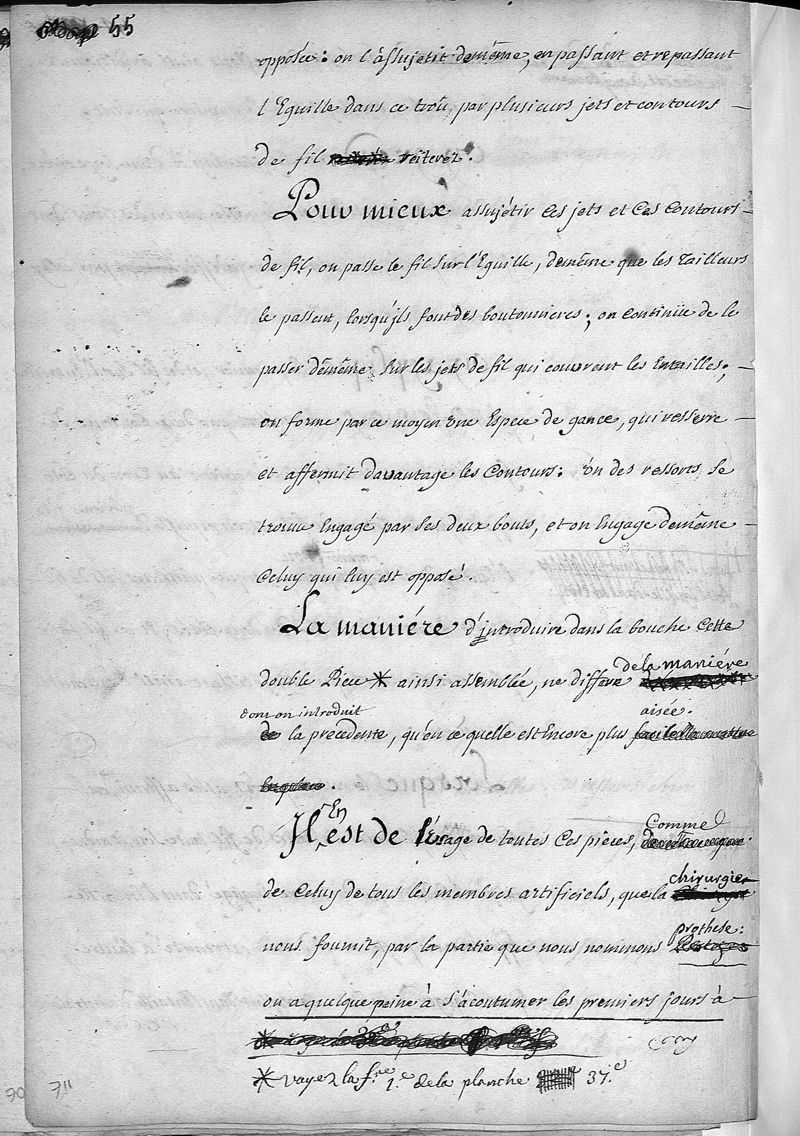 55
opposée: on l'assujetit demême, en passant et repassant
l'Equille dans ce trou, par plusieurs jets et contours
de fil reiterez.
Pour mieux assujétir ces jets et ces contours
de fil, on passe le fil sur l'Equille, demême que les tailleurs
le passent, lorsqu'ils font des boutonnieres; on continüe de le
passer demême sur les jets de fil qui couvrent les Entailles;
on forme par ce moyen une Espece de gance, qui resserre
et affermit davantage les contours: un des ressorts se
trouve Engagé par ses deux bouts, et on Engage demême
celuy qui luy est opposé.
La maniére d'introduire dans la bouche cette
de la maniére
double Piece * ainsi assemblée, ne differe
dont on introduit aisée.
la precedente, qu'en ce quelle est Encore plus
En
Il est de l'usage de toutes ces pieces, comme
de celuy de tous les membres artificiels, que la chirurgie
nous fournit, par la partie que nous nommons prothese:
on a quelque peine à s'acoutumer les premiers jours à
* voyez la f.re 1.e de la planche 37.e
70 711